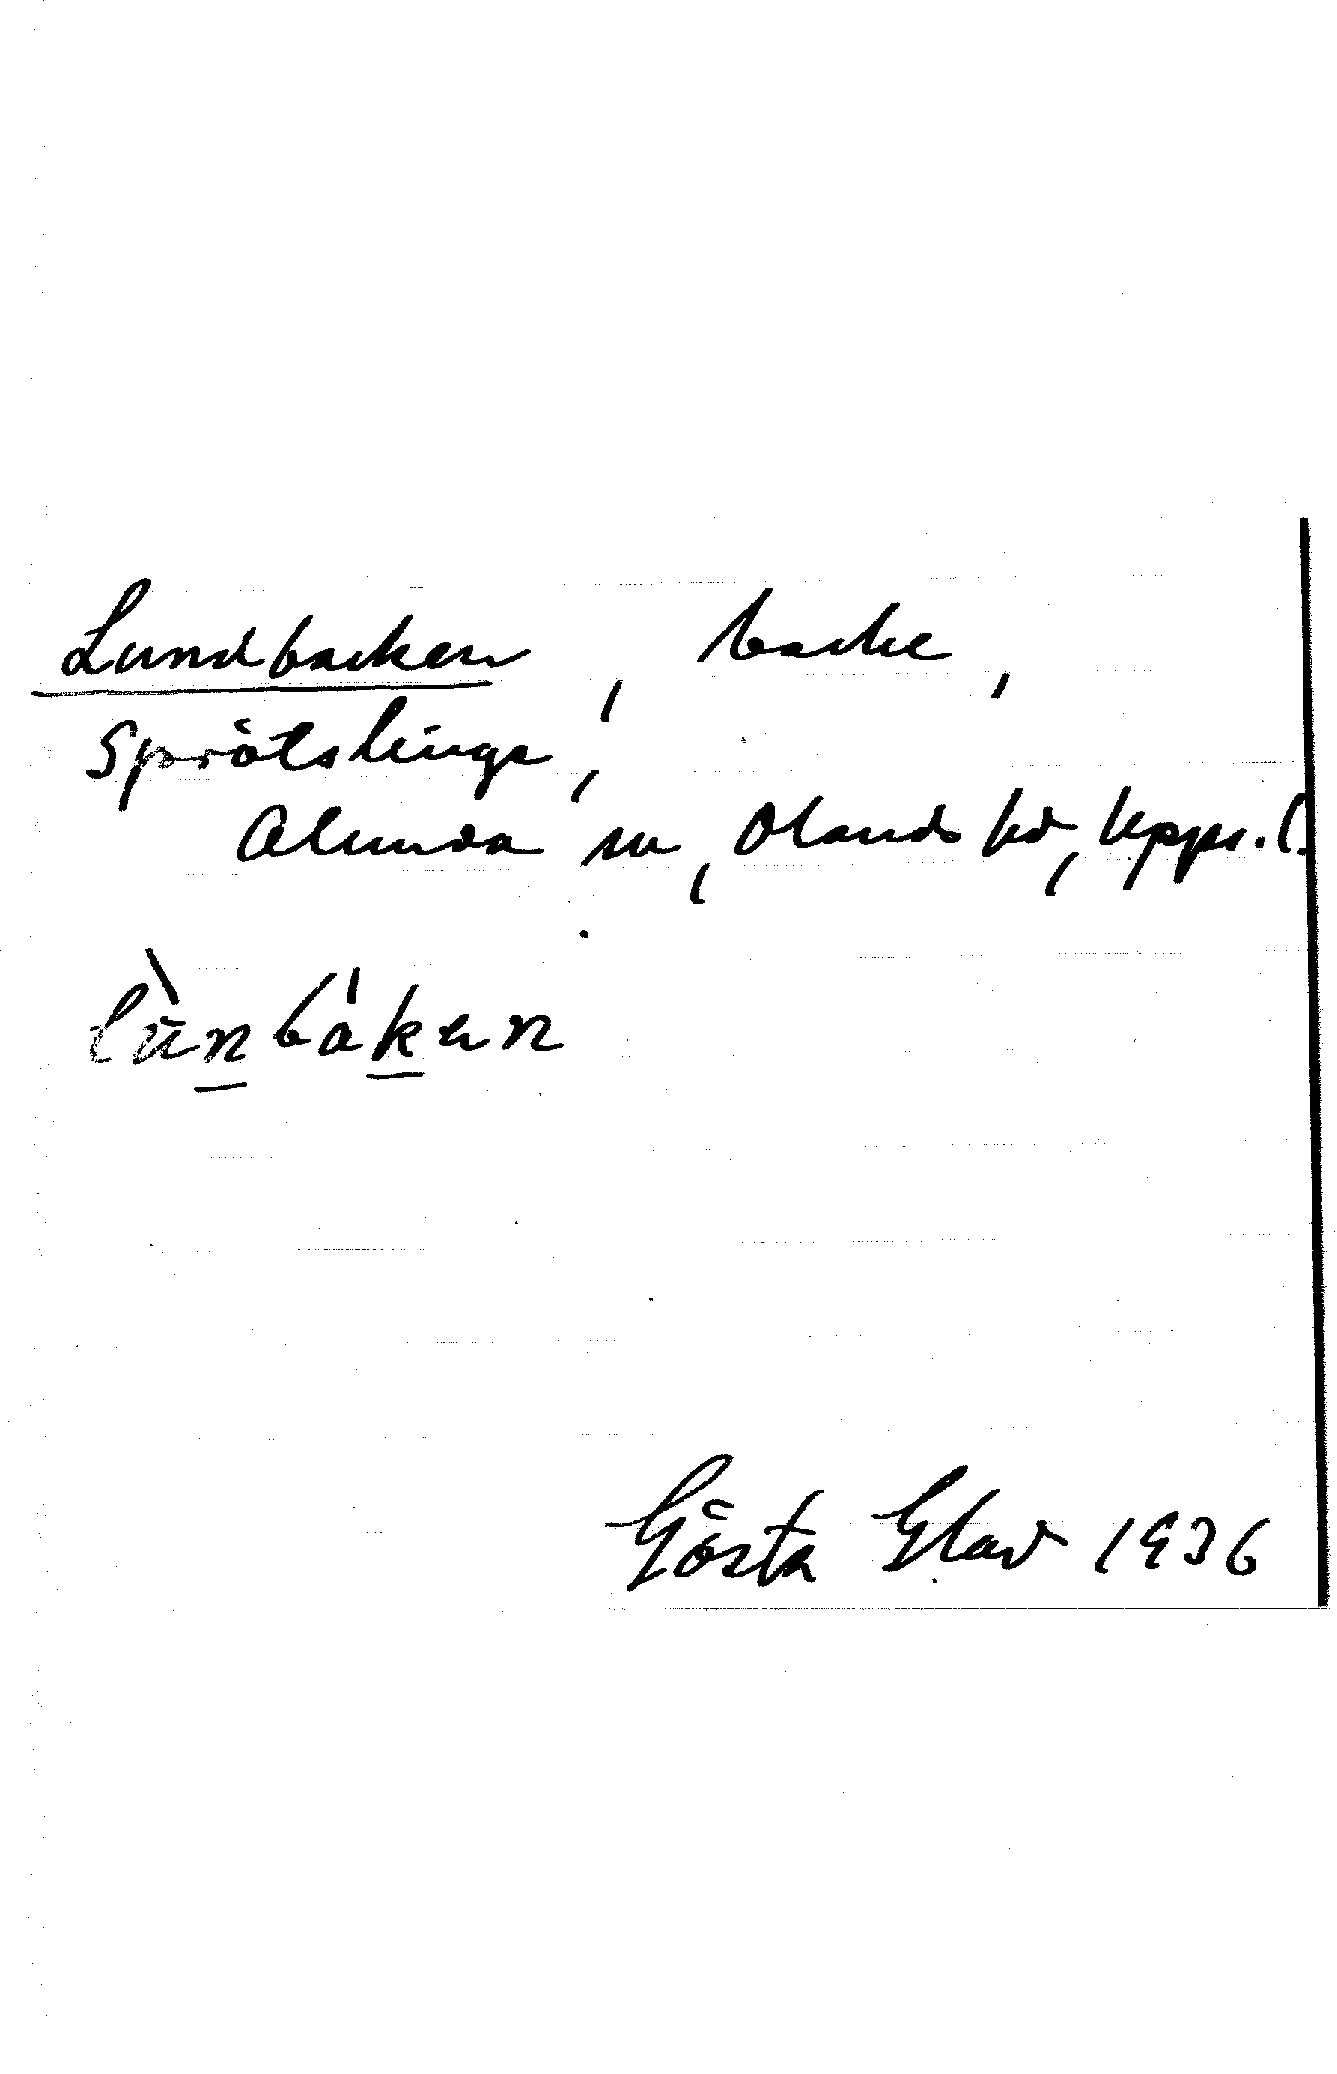 Lundbacken, backe,
Sprötslinge,
Alunda sn, Olands hd, Upps. l.
lùnbáken
Gösta Elav 1936